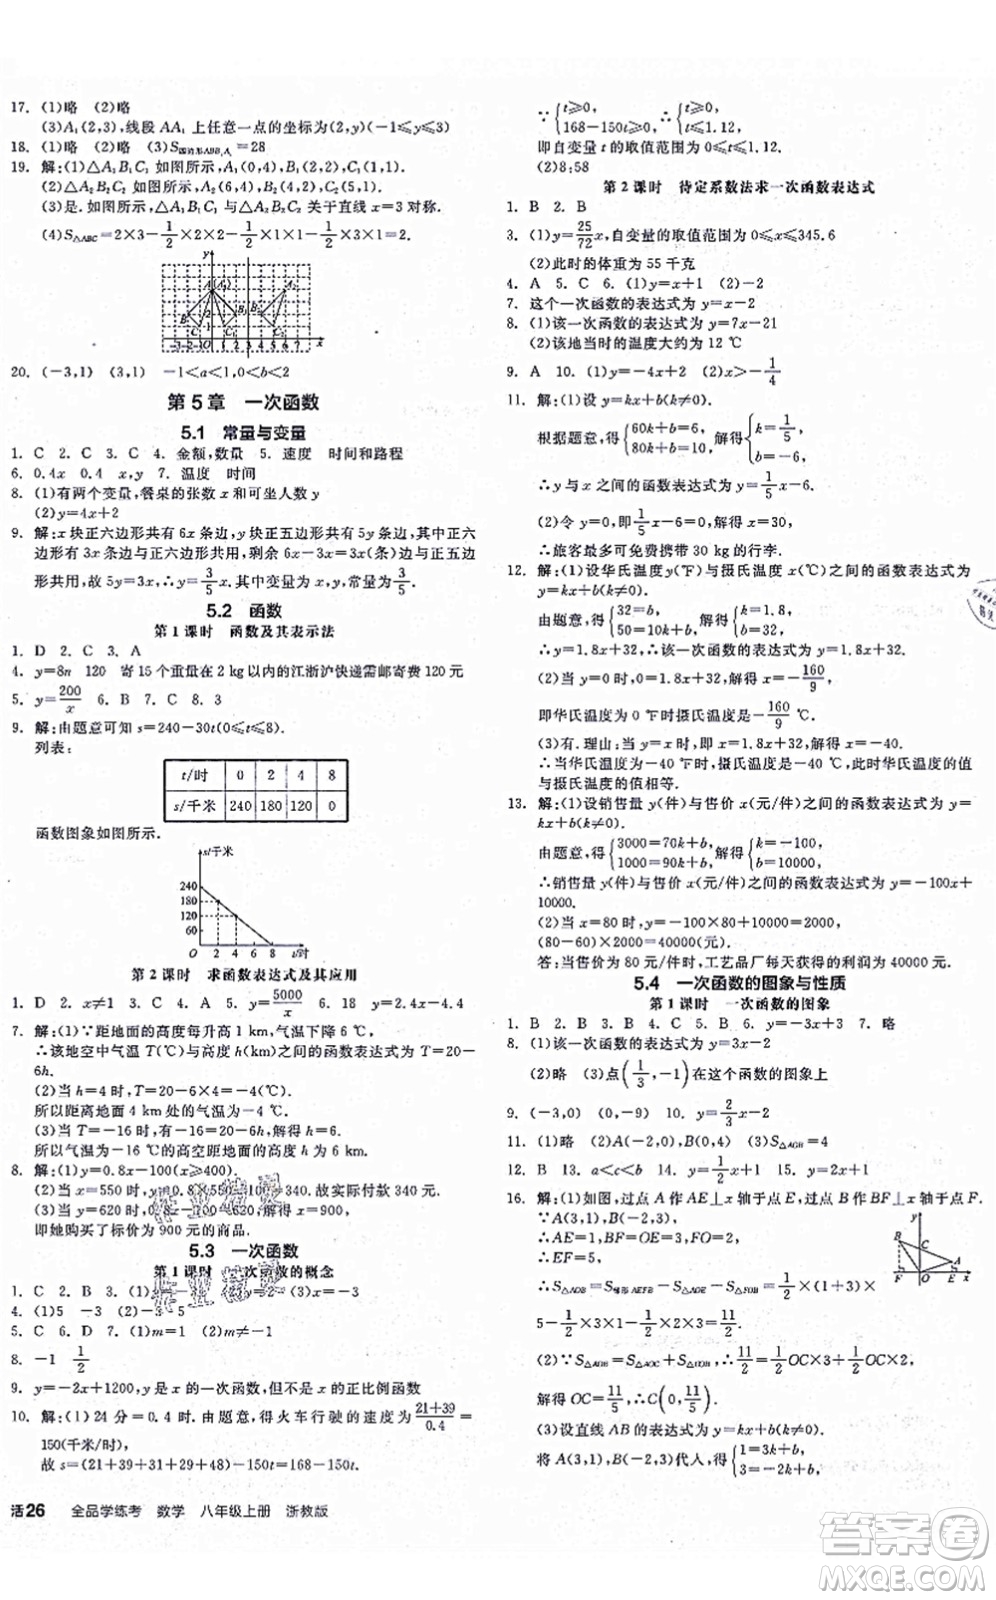 17. (1)略 (2)略
(3)A₁(2,3),线段 AA₁ 上任意一点的坐标为(2,y)(-1≤y≤3)
18. (1)略 (2)略 (3)S四边形ABB₁A₁=28
19. 解:(1)△A₁B₁C₁ 如图所示,A₁(0,4),B₁(2,2),C₁(1,1).
(2)△A₂B₂C₂ 如图所示,A₂(6,4),B₂(4,2),C₂(5,1).
(3)是.如图所示,△A₁B₁C₁ 与△A₂B₂C₂ 关于直线 x=3 对称.
(4)S△ABC=2×3-1/2×2×2-1/2×1×1-1/2×1×3=2.
20. (-3,1) (3,1) -1<a<1,0<b<2
第 5 章 一次函数
5.1 常量与变量
1. C 2. C 3. C 4. 金额,数量 5. 速度 时间和路程
6. 0.4x 0.4 x,y 7. 温度 时间
8. (1)有两个变量,餐桌的张数 x 和可坐人数 y
(2)y=4+2x
9. 解:x 块正六边形共有 6x 条边,y 块正五边形共有 5y 条边,其中正六
边形有 3x 条边与正六边形共用,剩余 6x-3x=3x(条)边与正五边
形共用,故 5y=3x,∴y=3/5x.其中变量为 x,y,常量为3/5.
5.2 函数
第 1 课时 函数及其表示法
1. D 2. A 3. D
4. y=8n 120 寄 15 个重量在 2 kg 以内的江浙沪快递需邮寄费 120 元
5. y=200/x 6. B 7. C 8. 3
9. 解:由题意可知 s=240-30t(0≤t≤8).
列表:
t/时 0 2 4 8
s/千米 240 180 120 0
函数图象如图所示.
s/千米
240
180
120
O 2 4 6 8 t/时
第 2 课时 求函数表达式及其应用
1. D 2. x≠1 3. C 4. A 5. y=5000/x 6. 18 x=4.4
7. 解:(1)∵距地面的高度每升高 1 km,气温下降 6 ℃,
∴该地空中气温 T(℃)与高度 h(km)之间的函数表达式为 T=20-
6h.
(2)当 h=4 时,T=20-6×4=-4(℃),
所以距离地面 4 km 处的气温为-4 ℃.
(3)当 T=-16 时,有-16=20-6h,解得 h=6.
所以气温为-16 ℃的高空距地面的高度为 6 km.
8. 解:(1)y=0.8x-100(x≥400).
(2)当 x=550 时,y=0.8×550-100=340.故实际付款 340 元.
(3)当 y=620 时,0.8x-100=620,解得 x=900.
即她购买了标价为 900 元的商品.
5.3 一次函数
第 1 课时 一次函数的概念
1. C 2. B 3. (1)m≠-2 (2)m=2 (3)x=-3
4. (1)5 -3 (2)-3 5
5. C 6. D 7. (1)m=1 (2)m≠-1
8. -1 1/2
9. y=-2x+1200,是 x 的一次函数,但不是 x 的正比例函数
10. 解:(1)24 分=0.4 时,由题意,得火车行驶的速度为(21+39)/0.4=
150(千米/时),
故 s=(21+39+31+29+48)-150t=168-150t.
∵{t≥0, 168-150t≥0, ∴{t≥0, t≤1.12,
即自变量 t 的取值范围为 0≤t≤1.12.
(2)8:58
第 2 课时 待定系数法求一次函数表达式
1. B 2. B
3. (1)y=25/72x,自变量的取值范围为 0≤x≤345.6
(2)此时的体重为 55 千克
4. A 5. C 6. (1)y=x+1 (2)-2
7. 这个一次函数的表达式为 y=x-2
8. (1)该一次函数的表达式为 y=7x-21
(2)该地当时的温度大约为 12 ℃
9. A 10. (1)y=-2x+1 (2)y=-x -1/4
11. 解:(1)设 y=kx+b(k≠0).
根据题意,得{60k+b=6, 80k+b=10, 解得{k=1/5, b=-6,
∴y 与 x 之间的函数表达式为 y=1/5x-6.
(2)令 y=0,即1/5x-6=0,解得 x=30,
∴旅客可免费携带 30 kg 的行李.
12. 解:(1)设华氏温度 y(℉)与摄氏温度 x(℃)之间的函数表达式为 y=
kx+b(k≠0).
由题意,得{32=b, 50=10k+b, 解得{k=1.8, b=32,
∴y=1.8x+32.
(2)当 y=0 时,0=1.8x+32,解得 x=-160/9,
即华氏温度为 0 ℉时摄氏温度为-160/9 ℃.
(3)有.理由:当 y=x 时,x=1.8x+32,解得 x=-40.
∴当华氏温度为-40 ℉时,摄氏温度为-40 ℃,此时华氏温度的值
与摄氏温度的值相等.
13. 解:(1)设销售量 y(件)与售价 x(元/件)之间的函数表达式为 y=
kx+b(k≠0).
由题意,得{3000=70k+b, 1000=90k+b, 解得{k=-100, b=10000,
∴销售量 y(件)与售价 x(元/件)之间的函数表达式为 y=-100x+
10000.
(2)当 x=80 时,y=-100×80+10000=2000,
(80-60)×2000=40000(元).
答:当售价为 80 元/件时,工艺品厂每天获得的利润为 40000 元.
5.4 一次函数的图象与性质
第 1 课时 一次函数的图象
1. B 2. B 3. D 4. C 5. B 6. y=-3x+1 7. 略
8. (1)该一次函数的表达式为 y=3x-2
(2)略 (3)点(1/3,-1)在这个函数的图象上
9. (-3,0) (0,6) 10. y=2/3x-2
11. (1)略 (2)A(-2,0),B(0,4) (3)S△AOB=4
12. B 13. a<c<b 14. y=1/2x 15. D
16. 解:(1)如图,过点 A 作 AE⊥x 轴于点 E,过点 B 作 BF⊥x 轴于点 F.
∵A(3,1),B(-2,3),
∴AE=1,BF=3,EO=3,FO=2,
∴EF=5.
∴S△AOB=S梯形AEFB-S△AOE-S△BOF=1/2×(1+3)×
5-1/2×1×3-1/2×2×3=11/2.
(2)∵S△AOB=S△AOC+S△BOC,∴11/2=1/2OC×3+1/2OC×2,
解得 OC=11/5,∴C(0,11/5).
(3)设直线 AB 的函数表达式为 y=kx+b(k≠0),则{1=3k+b, 3=-2k+b,
活26 全品学练考 数学 八年级上册 浙教版
答案卷
MXQE.COM